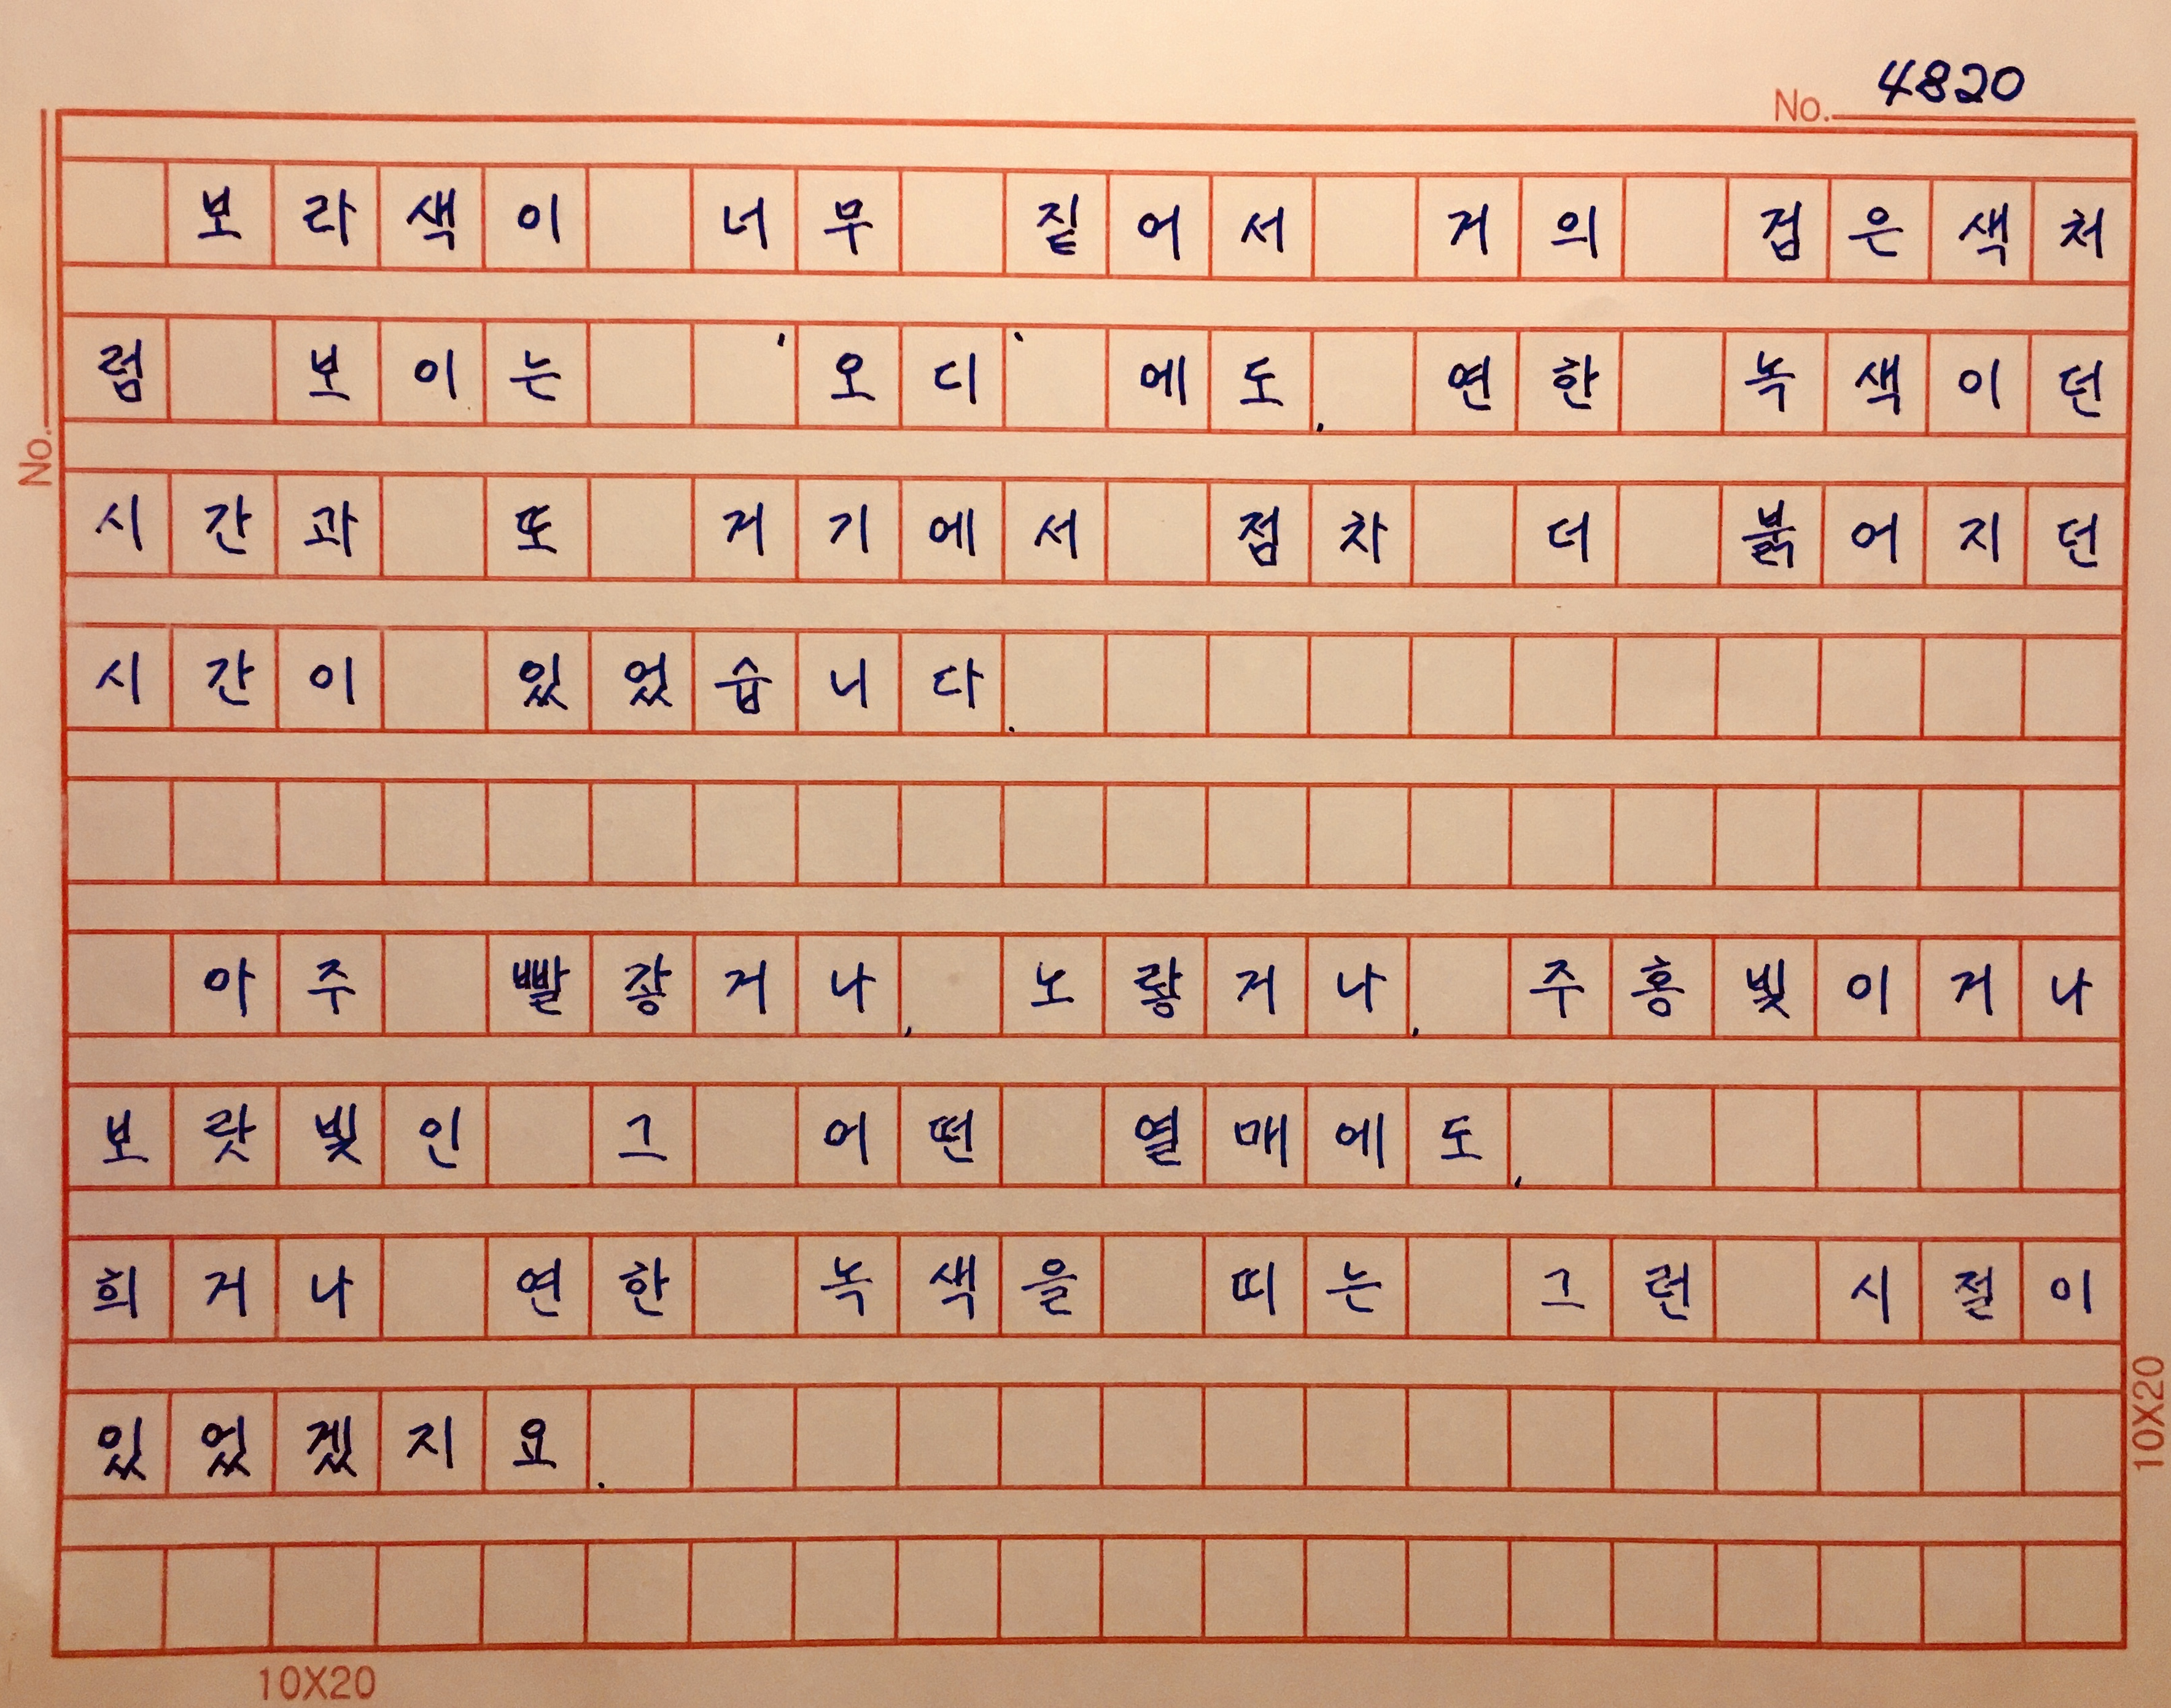 No. 4820
보라색이 너무 짙어서 거의 검은색처
럼 보이는 '오디'에도, 연한 녹색이던
No.
시간과 또 거기에서 점차 더 붉어지던
시간이 있었습니다.
아주 빨갛거나, 노랗거나, 주홍빛이거나
보랏빛인 그 어떤 열매에도,
희거나 연한 녹색을 띠는 그런 시절이
있었겠지요.
10X20
10X20